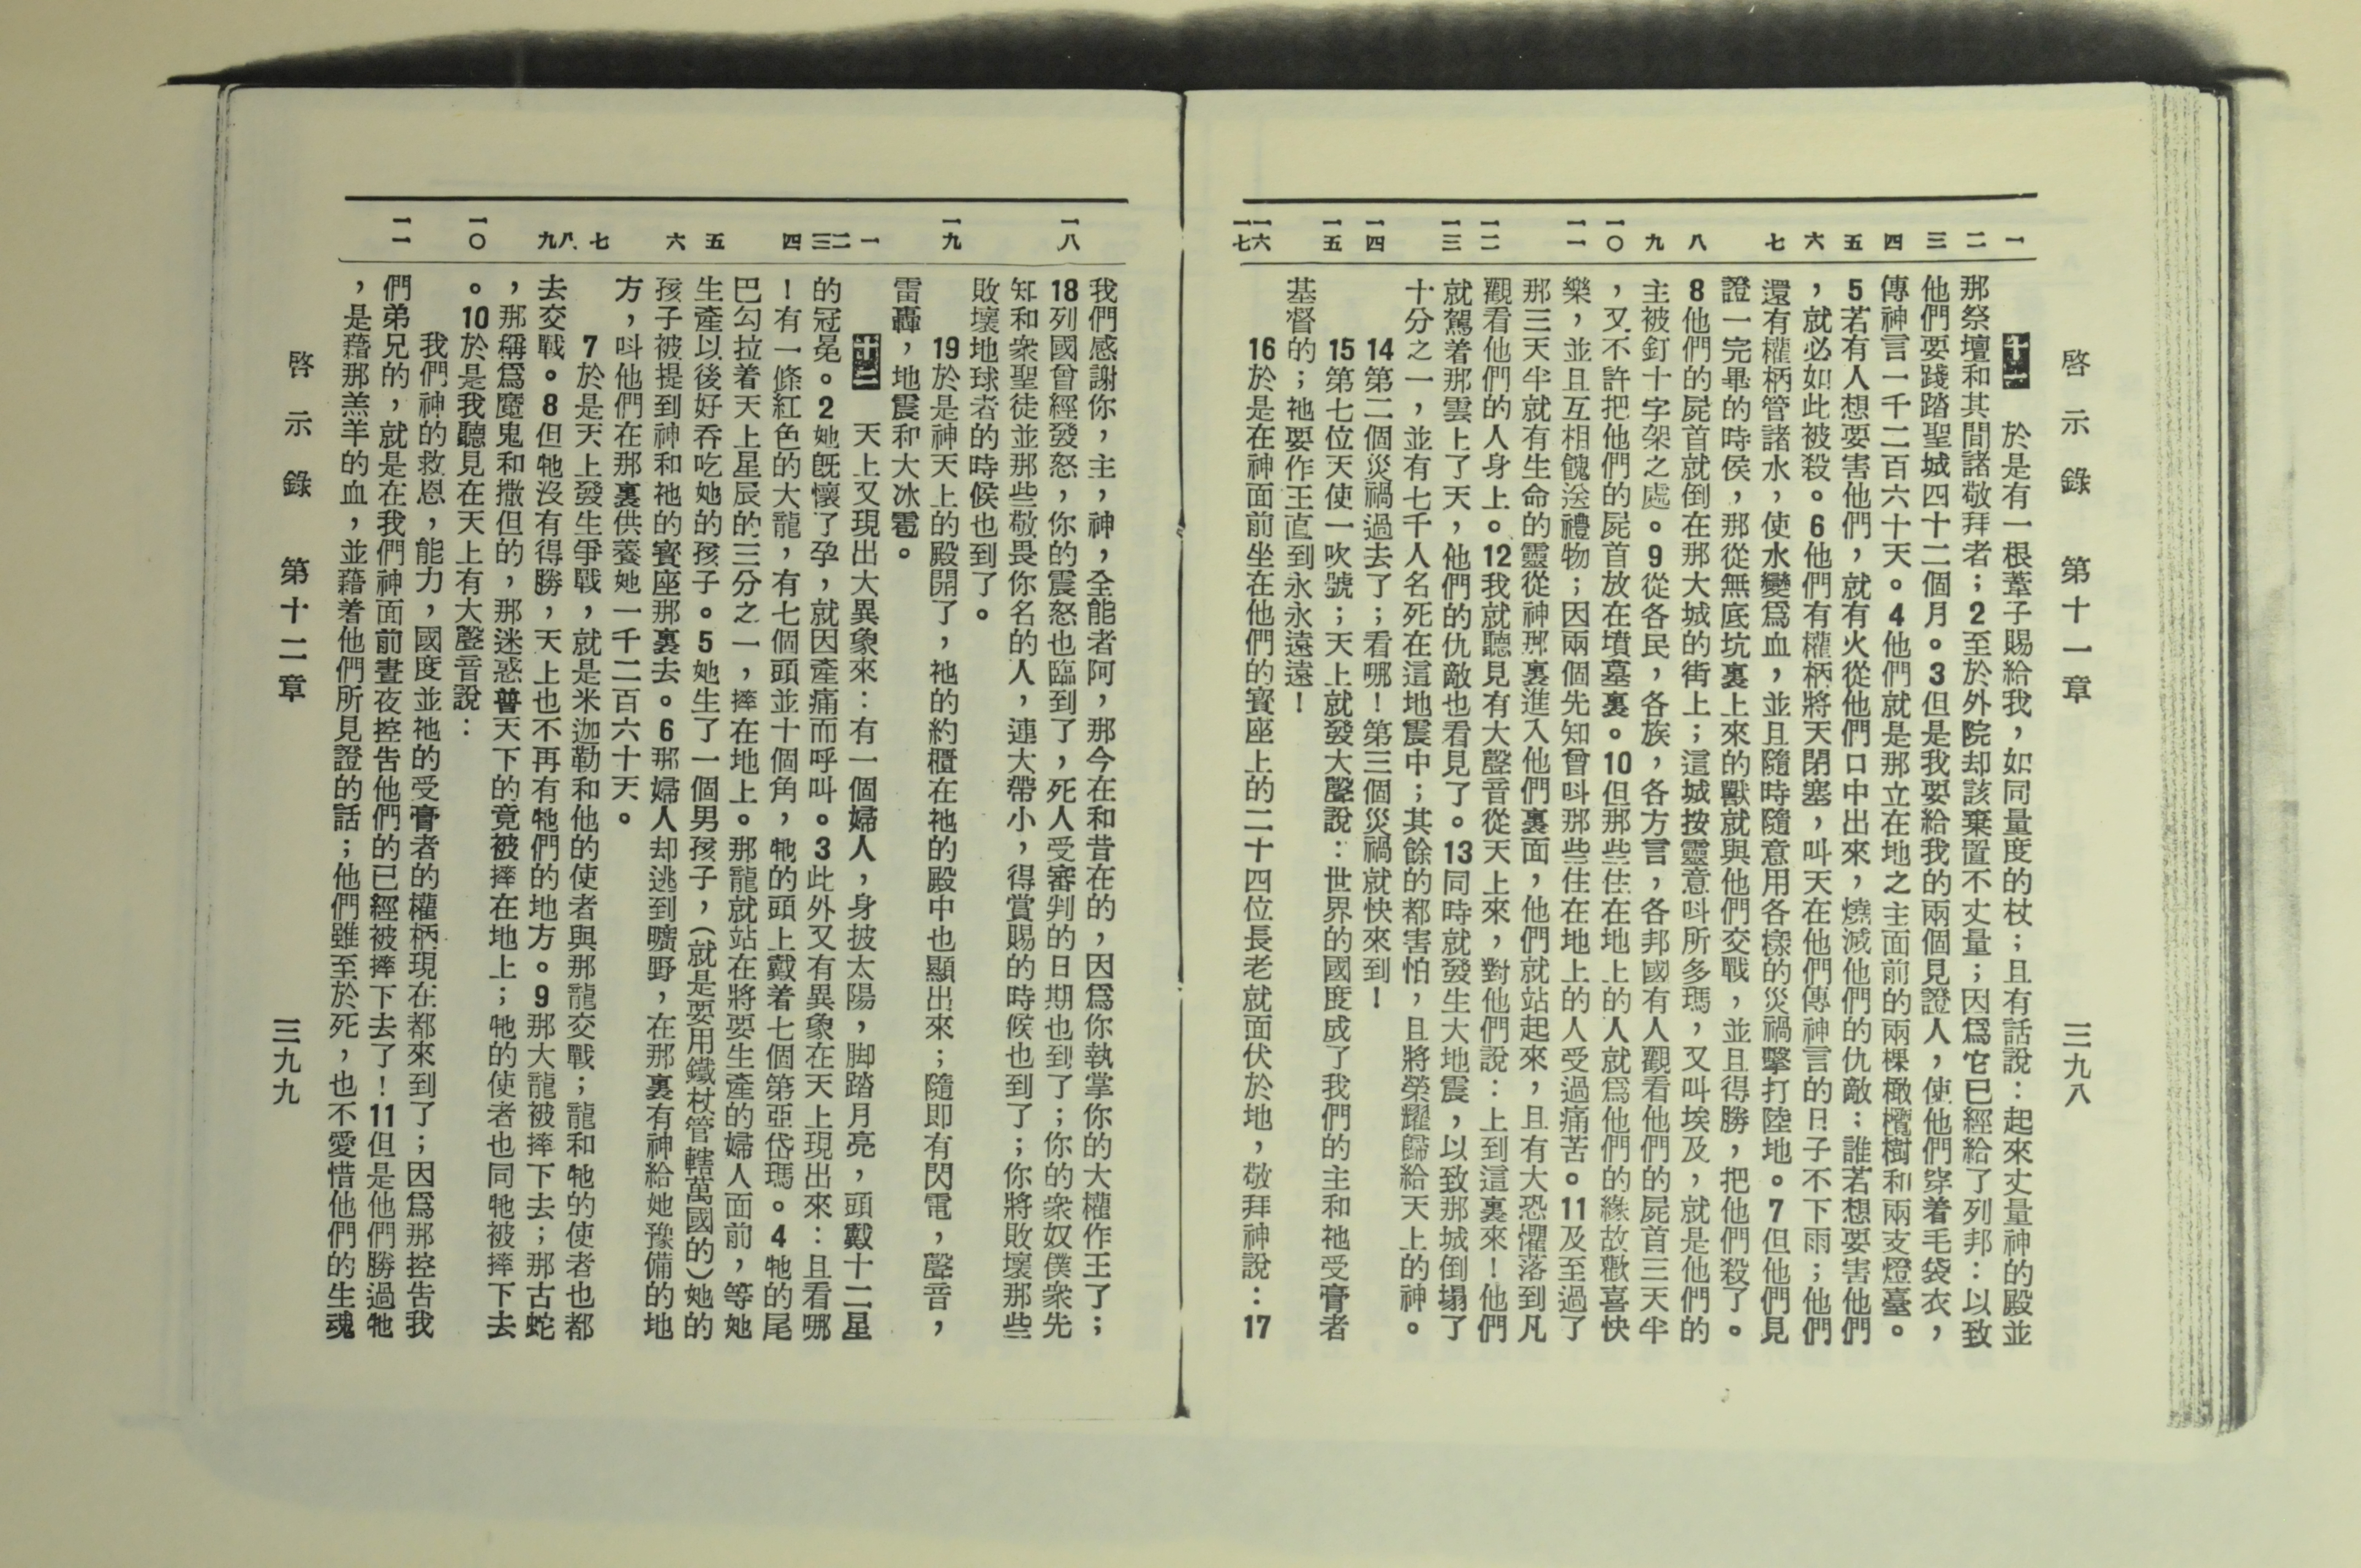 啓示錄　第十一章　三九八
一　二　三　四　五　六　七　八　九　一〇　一一　一二　一三　一四　一五　一六　一七
十一　於是有一根葦子賜給我，如同量度的杖；且有話說：起來丈量神的殿並
那祭壇和其間諸敬拜者；2至於外院却該棄置不丈量；因爲它已經給了列邦：以致
他們要踐踏聖城四十二個月。3但是我要給我的兩個見證人，使他們穿着毛袋衣，
傳神言一千二百六十天。4他們就是那立在地之主面前的兩棵橄欖樹和兩支燈臺。
5若有人想要害他們，就有火從他們口中出來，燒滅他們的仇敵；誰若想要害他們
，就必如此被殺。6他們有權柄將天閉塞，叫天在他們傳神言的日子不下雨；他們
還有權柄管諸水，使水變爲血，並且隨時隨意用各樣的災禍擊打陸地。7但他們見
證一完畢的時侯，那從無底坑裏上來的獸就與他們交戰，並且得勝，把他們殺了。
8他們的屍首就倒在那大城的街上；這城按靈意叫所多瑪，又叫埃及，就是他們的
主被釘十字架之處。9從各民，各族，各方言，各邦國有人觀看他們的屍首三天半
，又不許把他們的屍首放在墳墓裏。10但那些住在地上的人就爲他們的緣故歡喜快
樂，並且互相餽送禮物；因兩個先知曾叫那些住在地上的人受過痛苦。11及至過了
那三天半就有生命的靈從神那裏進入他們裏面，他們就站起來，且有大恐懼落到凡
觀看他們的人身上。12我就聽見有大聲音從天上來，對他們說：上到這裏來！他們
就駕着那雲上了天，他們的仇敵也看見了。13同時就發生大地震，以致那城倒塌了
十分之一，並有七千人名死在這地震中；其餘的都害怕，且將榮耀歸給天上的神。
14第二個災禍過去了；看哪！第三個災禍就快來到！
15第七位天使一吹號；天上就發大聲說：世界的國度成了我們的主和祂受膏者
基督的；祂要作王直到永永遠遠！
16於是在神面前坐在他們的寶座上的二十四位長老就面伏於地，敬拜神說：17
一八　一九　一　二　三　四　五　六　七　八　九　一〇　一一
我們感謝你，主，神，全能者阿，那今在和昔在的，因爲你執掌你的大權作王了；
18列國曾經發怒，你的震怒也臨到了，死人受審判的日期也到了；你的衆奴僕衆先
知和衆聖徒並那些敬畏你名的人，連大帶小，得賞賜的時候也到了；你將敗壞那些
敗壞地球者的時候也到了。
19於是神天上的殿開了，祂的約櫃在祂的殿中也顯出來；隨即有閃電，聲音，
雷轟，地震和大冰雹。
十二　天上又現出大異象來：有一個婦人，身披太陽，脚踏月亮，頭戴十二星
的冠冕。2她既懷了孕，就因產痛而呼叫。3此外又有異象在天上現出來：且看哪
！有一條紅色的大龍，有七個頭並十個角，牠的頭上戴着七個第亞岱瑪。4牠的尾
巴勾拉着天上星辰的三分之一，摔在地上。那龍就站在將要生產的婦人面前，等她
生產以後好吞吃她的孩子。5她生了一個男孩子，（就是要用鐵杖管轄萬國的）她的
孩子被提到神和祂的寶座那裏去。6那婦人却逃到曠野，在那裏有神給她豫備的地
方，叫他們在那裏供養她一千二百六十天。
7於是天上發生爭戰，就是米迦勒和他的使者與那龍交戰；龍和牠的使者也都
去交戰。8但牠沒有得勝，天上也不再有牠們的地方。9那大龍被摔下去；那古蛇
，那稱爲魔鬼和撒但的，那迷惑普天下的竟被摔在地上；牠的使者也同牠被摔下去
。10於是我聽見在天上有大聲音說：
我們神的救恩，能力，國度並祂的受膏者的權柄現在都來到了；因爲那控告我
們弟兄的，就是在我們神面前晝夜控告他們的已經被摔下去了！11但是他們勝過牠
，是藉那羔羊的血，並藉着他們所見證的話；他們雖至於死，也不愛惜他們的生魂
啓示錄　第十二章　三九九